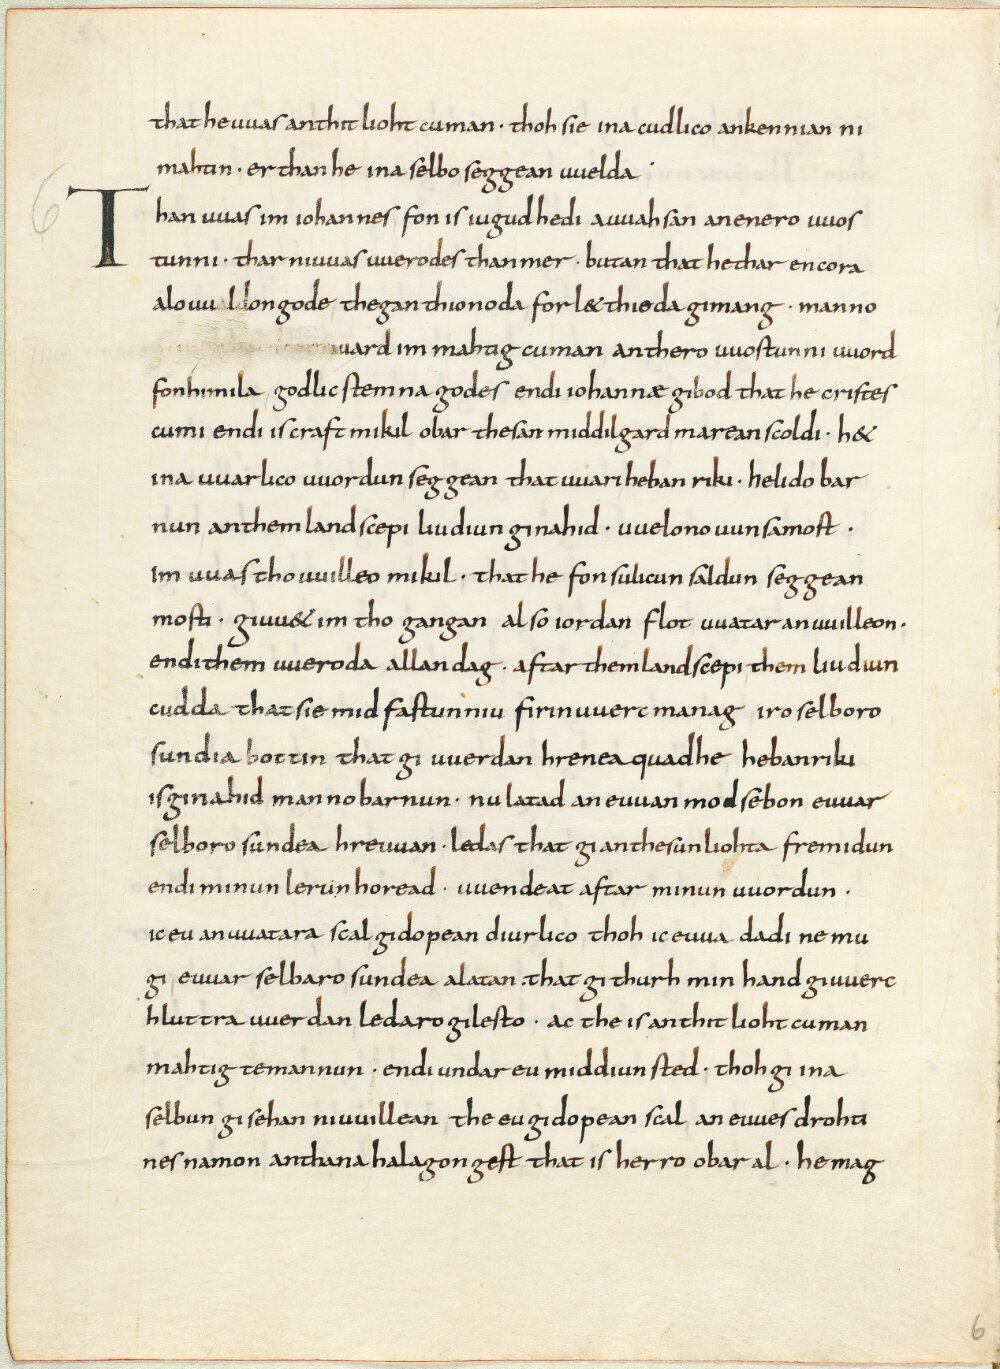 that he uuas an thit lioht cuman · thoh sie ina cudlico ankennian ni
mahtin · er than he ina selbo seggean uuelda ·
6 Than uuas im iohannes fon is iugudhedi auuahsan an enero uuos
tunni · thar ni uuas uuerodes than mer · butan that he thar encora
alouualdon gode thegan thionoda forlet thioda gimang · manno
uuard im mahtig cuman an thero uuostunni uuord
fon himila godlic stemna godes endi iohannæ gibod that he cristes
cumi endi is craft mikil obar thesan middilgard marean scoldi · het
ina uuarlico uuordun seggean that uuari heban riki · helido bar
nun an them landscepi liudiun ginahid · uuelono uunsamost ·
Im uuas tho uuilleo mikil · that he fon sulicun saldun seggean
mosti · giuuet im tho gangan al so iordan flot uuatar an uuilleon ·
endi them uueroda allan dag · aftar them landscepi them liudiun
cudda that sie mid fastunniu firinuuerc manag iro selboro
sundia bottin that gi uuerdan hrenea quad he hebanriki
is ginahid manno barnun · nu latad an euuan modsebon euuar
selboro sundea hreuuan · ledas that gi an thesun liohta fremidun
endi minun lerun horead · uuendeat aftar minun uuordun ·
ic eu an uuatara scal gidopean diurlico thoh ic euua dadi ne mu
gi euuar selbaro sundea alatan · that gi thurh min handgiuuerc
hluttra uuerdan ledaro gilesto · ac the is an thit lioht cuman
mahtig te mannun · endi undar eu middiun sted · thoh gi ina
selbun gisehan ni uuillean the eu gidopean scal an euues drohti
nes namon an thana halagon gest that is herro obar al · he mag
6